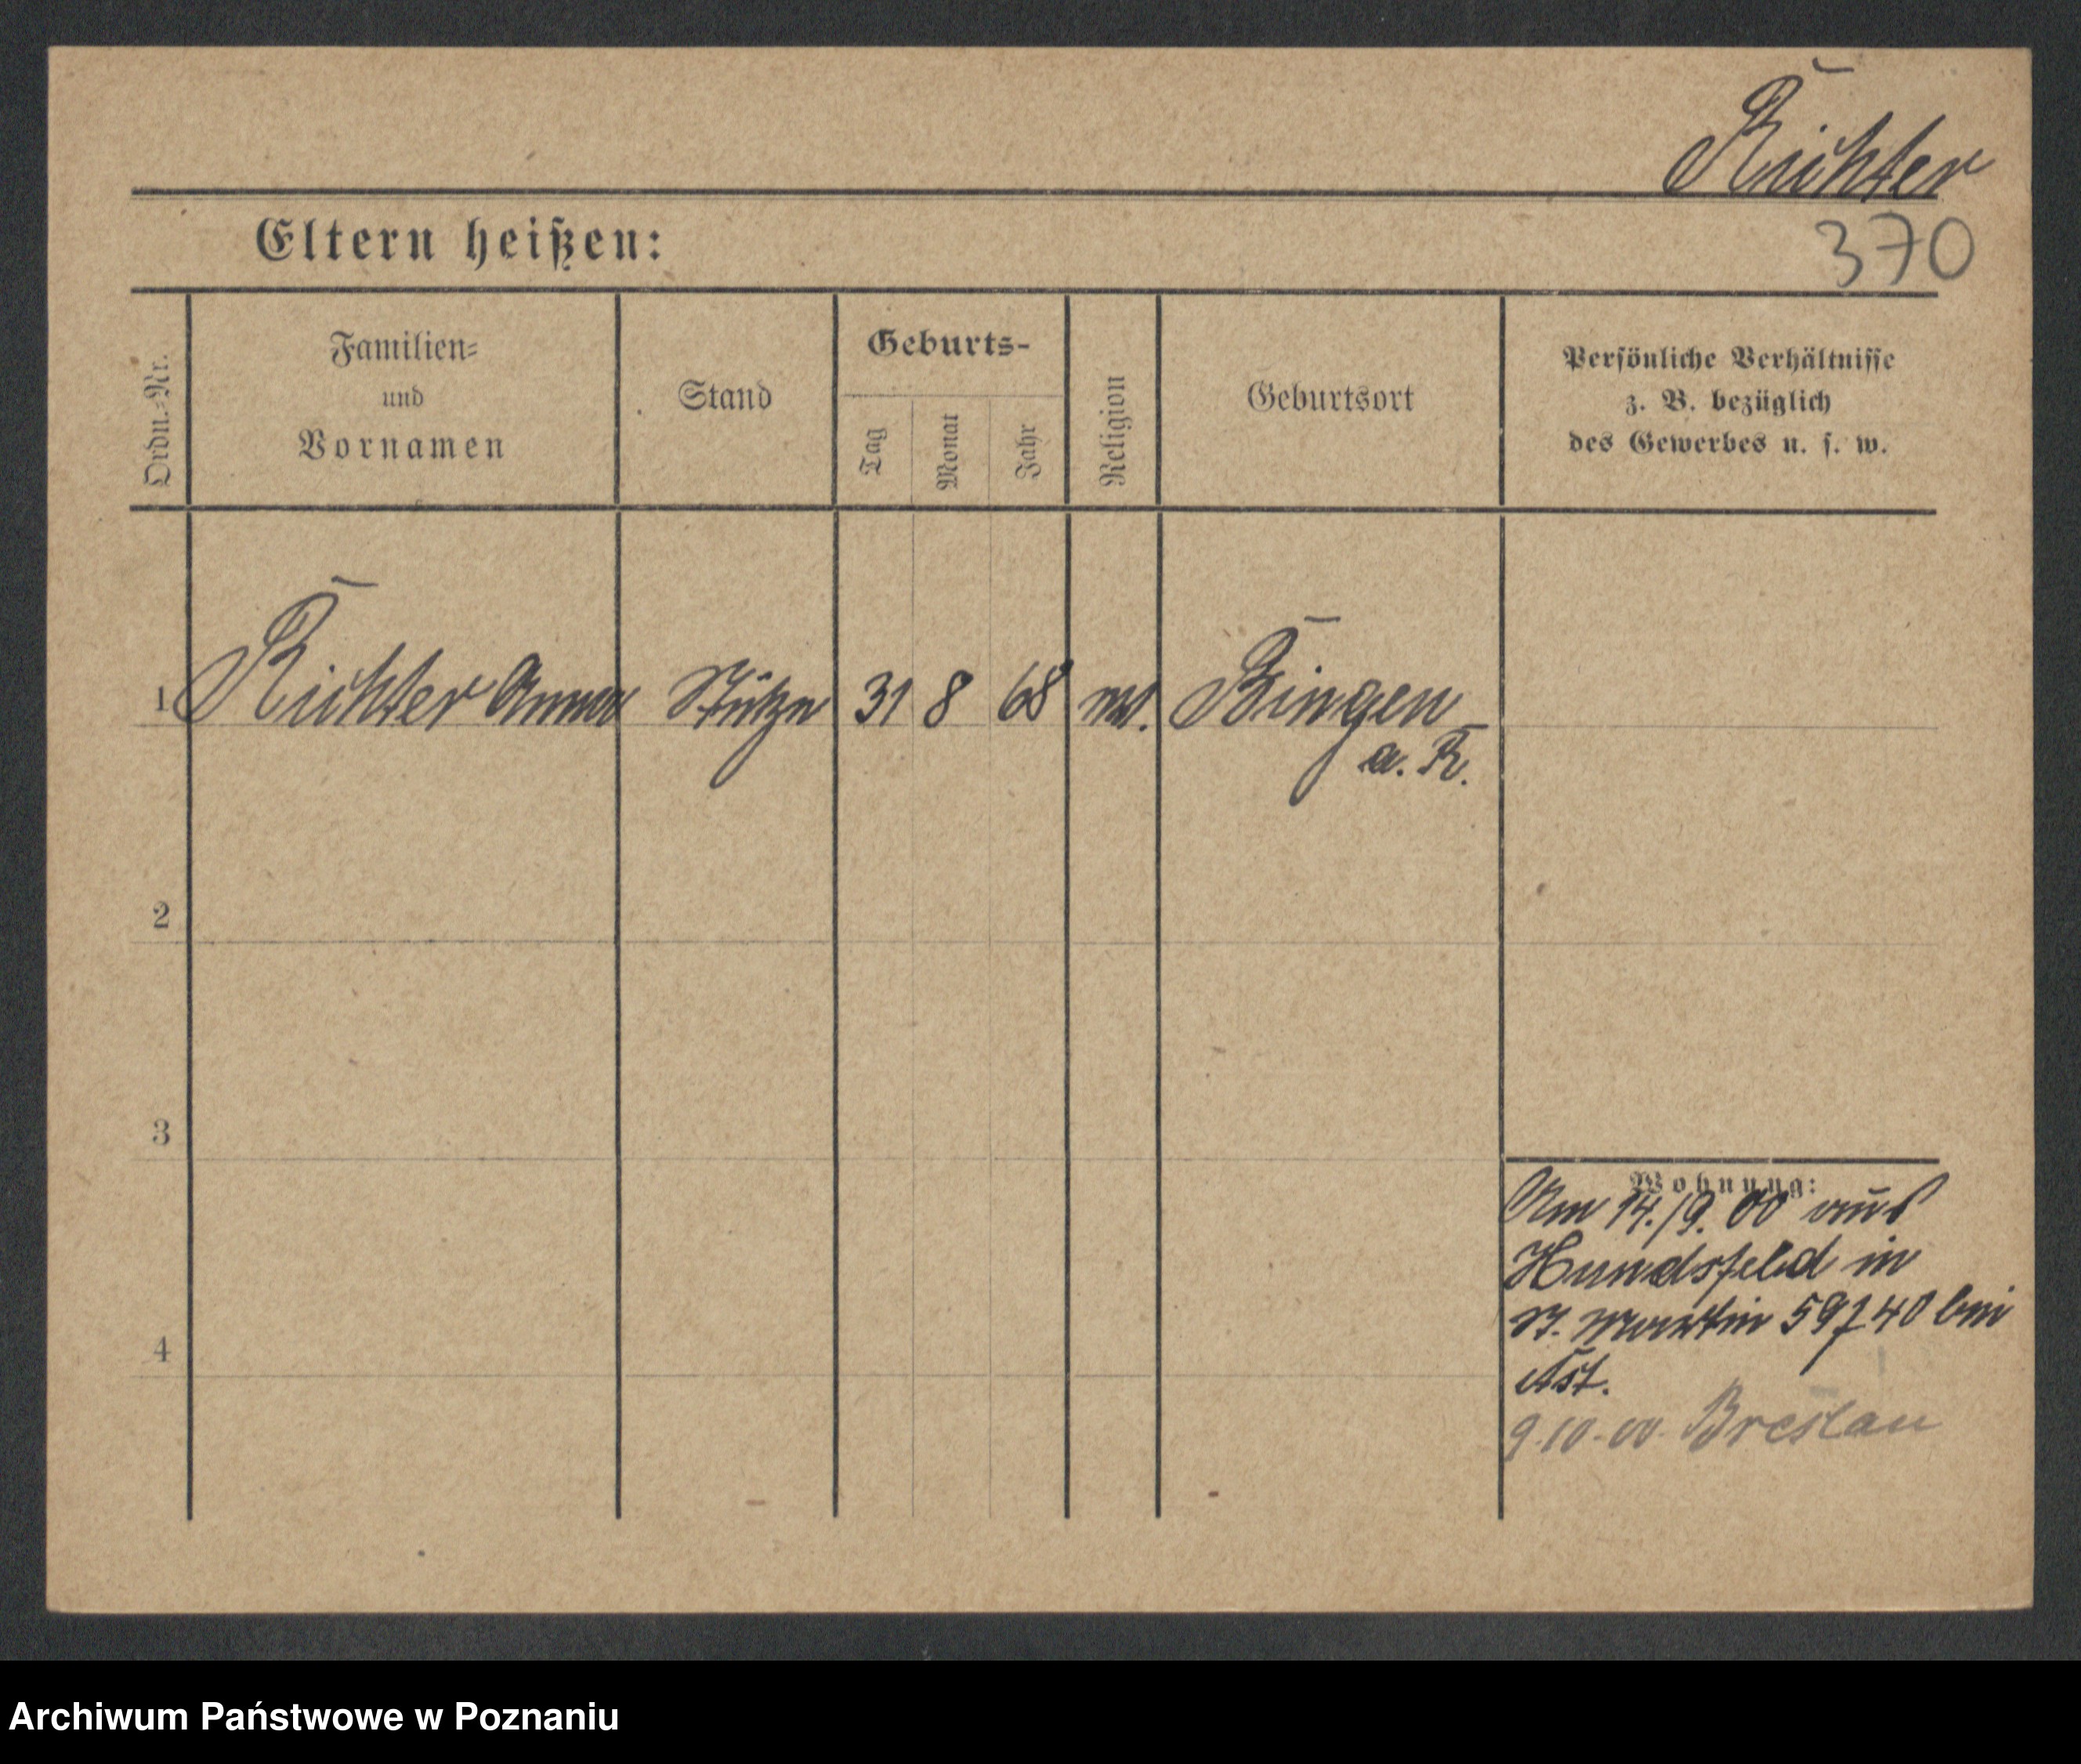 Richter
Eltern heißen:
370
Ordn.-Nr.
Familien-
und
Vornamen
Stand
Geburts-
Tag
Monat
Jahr
Religion
Geburtsort
Persönliche Verhältnisse
z. B. bezüglich
des Gewerbes u. s. w.
1 Richter Anna Stütze 31 8 68 ev. Bingen
a. R.
2
3
4
Wohnung:
Am 14./9. 00 aus
Hundsfeld in
St. Martin 59/40 bei
Ast.
9.10.00. Breslau
Archiwum Państwowe w Poznaniu